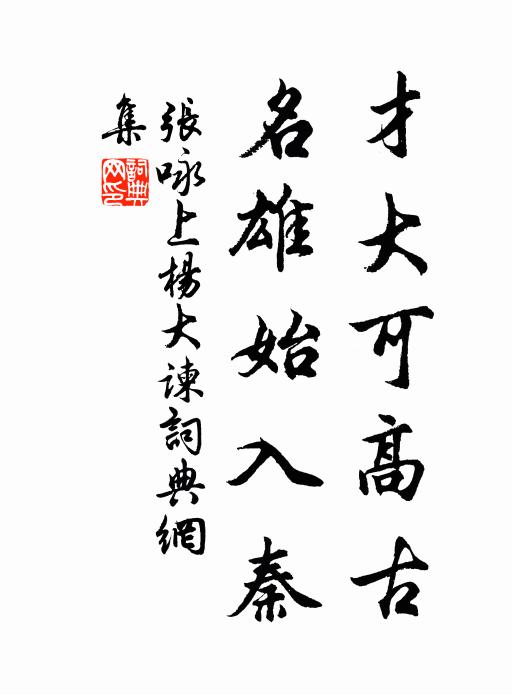 才大可高古
名雄始入秦
張咏上楊大諫詞典網
集
詞典网印